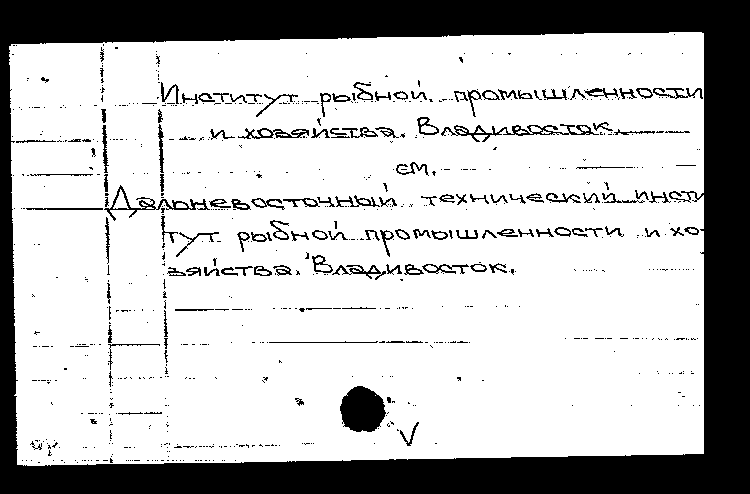 Институт рыбной промышленности
и хозяйства. Владивосток.
см.
Дальневосточный технический инсти
тут рыбной промышленности и хо-
зяйства. Владивосток.